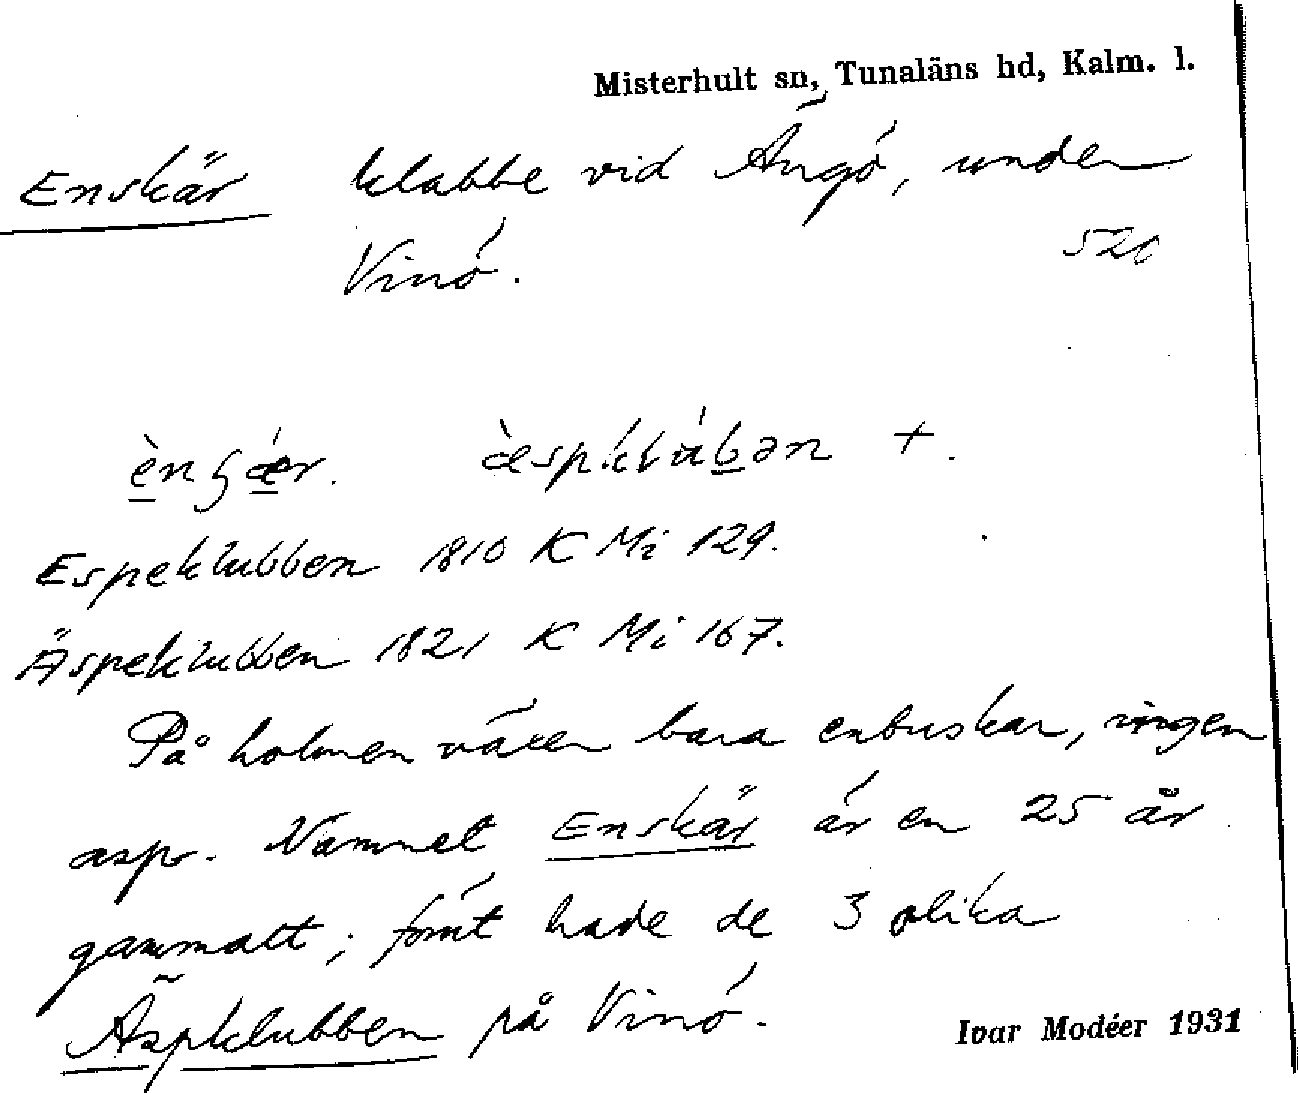 Misterhult sn, Tunaläns hd, Kalm. l.
Enskär klabbe vid Ängö, under
Vinö. 520
æspklubən +.
Espeklubben 1810 K Mi 129.
Äspeklubben 1821 K Mi 167.
På holmen växer bara enbuskar, ingen
asp. Namnet Enskär är en 25 år
gammalt; förut hade de 3 olika
Äspklubben på Vinö.
Ivar Modéer 1931